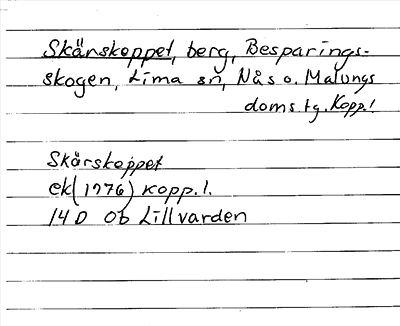 Skärskoppet, berg, Besparings-
skogen, Lima sn, Nås o. Malungs
doms.tg. Kopp.l
Skärskoppet
ek(1976) Kopp.l.
14D 0b Lillvarden